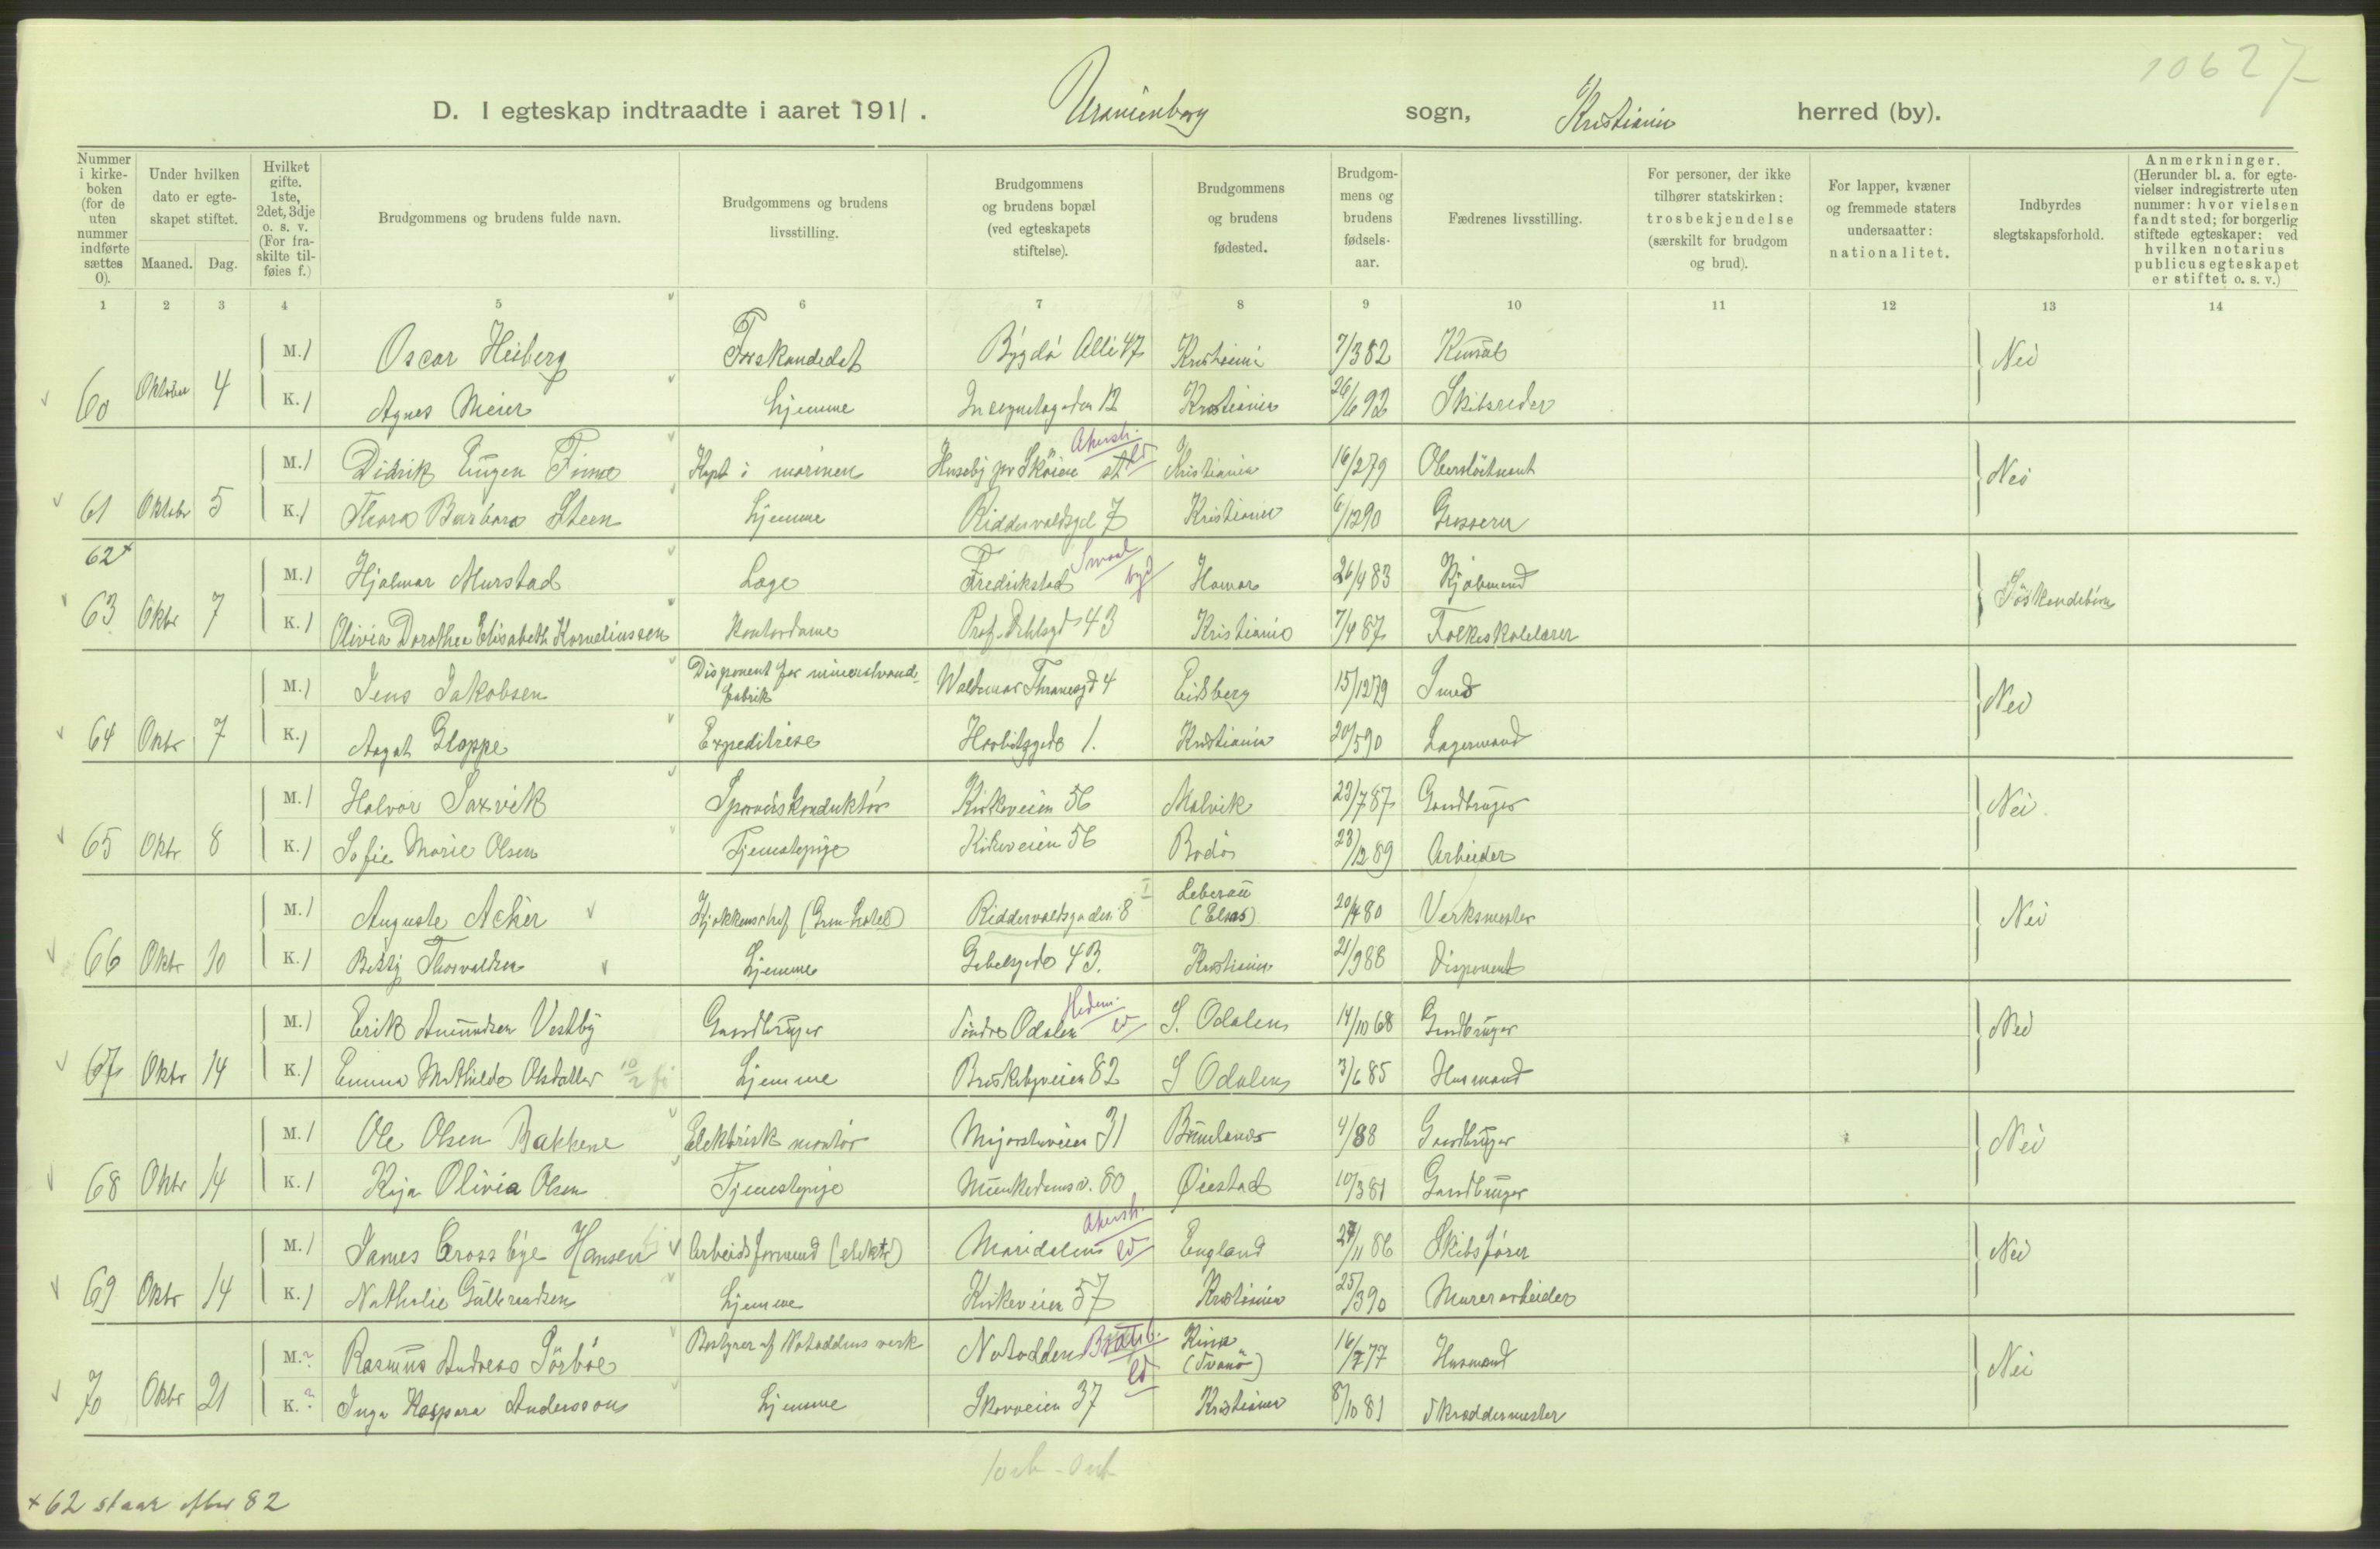 10627
D. I egteskap indtraadte i aaret 1911. Uranienborg sogn, Kristiania herred (by).
Nummer i kirkeboken (for de uten nummer indførte sættes 0).
Under hvilken dato er egteskapet stiftet.
Maaned. Dag.
Hvilket gifte. 1ste, 2det, 3dje o. s. v. (For fraskilte tilføies f.)
Brudgommens og brudens fulde navn.
Brudgommens og brudens livsstilling.
Brudgommens og brudens bopæl (ved egteskapets stiftelse).
Brudgommens og brudens fødested.
Brudgommens og brudens fødselsaar.
Fædrenes livsstilling.
For personer, der ikke tilhører statskirken: trosbekjendelse (særskilt for brudgom og brud).
For lapper, kvæner og fremmede staters undersaatter: nationalitet.
Indbyrdes slegtskapsforhold.
Anmerkninger. (Herunder bl. a. for egtevielser indregistrerte uten nummer: hvor vielsen fandt sted; for borgerlig stiftede egteskaper: ved hvilken notarius publicus egteskapet er stiftet o. s. v.)
1 2 3 4 5 6 7 8 9 10 11 12 13 14
M. 1 Oscar Heiberg Forstkandidat Bygdö Allé 47 Kristiania 7/3 82 Konsul Nei
60 Oktober 4 K. 1 Agnes Meier hjemme Incognitogaden 12 Kristiania 26/6 92 Skibsreder
M. 1 Didrik Eugen Finne Kapt i marinen Huseby pr Sköien st Akersh. Kristiania 16/2 79 Oberstlöitnant Nei
61 Oktober 5 K. 1 Thora Barbara Steen hjemme Riddervoldsgd 7 Kristiania 6/12 90 Grosserer
62+
M. 1 Hjalmar Murstad Læge Fredrikstad Smaal Hamar 26/4 83 Kjöbmand Söskendebörn
63 Oktbr 7 K. 1 Olivia Dorothea Elisabeth Korneliussen Kontordame Prof. Dahlsgd 43 Kristiania 7/4 87 Folkeskolelærer
M. 1 Jens Jakobsen Disponent for mineralvandfabrik Waldemar Thranesgd 4 Eidsberg 15/12 79 Smed Nei
64 Oktbr 7 K. 1 Aagot Gloppe Expeditrise 1. Kristiania 20/5 90 Lagermand
M. 1 Halvor Saxvik Sporveiskonduktör Kirkeveien 56 Malvik 23/7 87 Gaardbruger Nei
65 Oktbr 8 K. 1 Sofie Marie Olsen Tjenestepige Kirkeveien 56 Bodö 23/12 89 Arbeider
M. 1 Auguste Acker Kjøkkenschef (Gran hotel) Riddervoldsgaden 8 Leberau (Elsas) 20/4 80 Verksmester Nei
66 Oktbr 10 K. 1 Betsy Thorvaldsen hjemme Gabelsgade 43. Kristiania 21/9 88 Disponent
M. 1 Erik Amundsen Vestby Gaardbruger Søndre Odalen Hedem. S. Odalen 14/10 68 Gaardbruger Nei
67 Oktbr 14 K. 1 Emma Mathilde Olsdatter hjemme Briskebyveien 82 S Odalen 3/6 85 Husmand
M. 1 Ole Olsen Bakkene Elektrisk montör Majorstuveien 31 Brunlanes 4/88 Gaardbruger Nei
68 Oktbr 14 K. 1 Kaja Olivia Olsen Tjenestepige Munkedamsv. 80 Øiestad 10/3 81 Gaardbruger
M. 1 James Crossbye Hansen Arbeidsformand (elektr) Maridalen Akersh. England 27/11 86 Skibsfører Nei
69 Oktbr 14 K. 1 Nathalie Gulbrandsen hjemme Kirkeveien 57 Kristiania 25/3 90 Murerarbeider
M. ? Rasmus Andreas Sörböe Bestyrer af Notoddens verk Notodden Bratsb. Kinn (Svanö) 16/7 77 Husmand Nei
70 Oktbr 21 K. ? Inga Kaspara Anderson hjemme Skovveien 37 Kristiania 8/10 81 Skræddermester
+ 62 staar efter 82